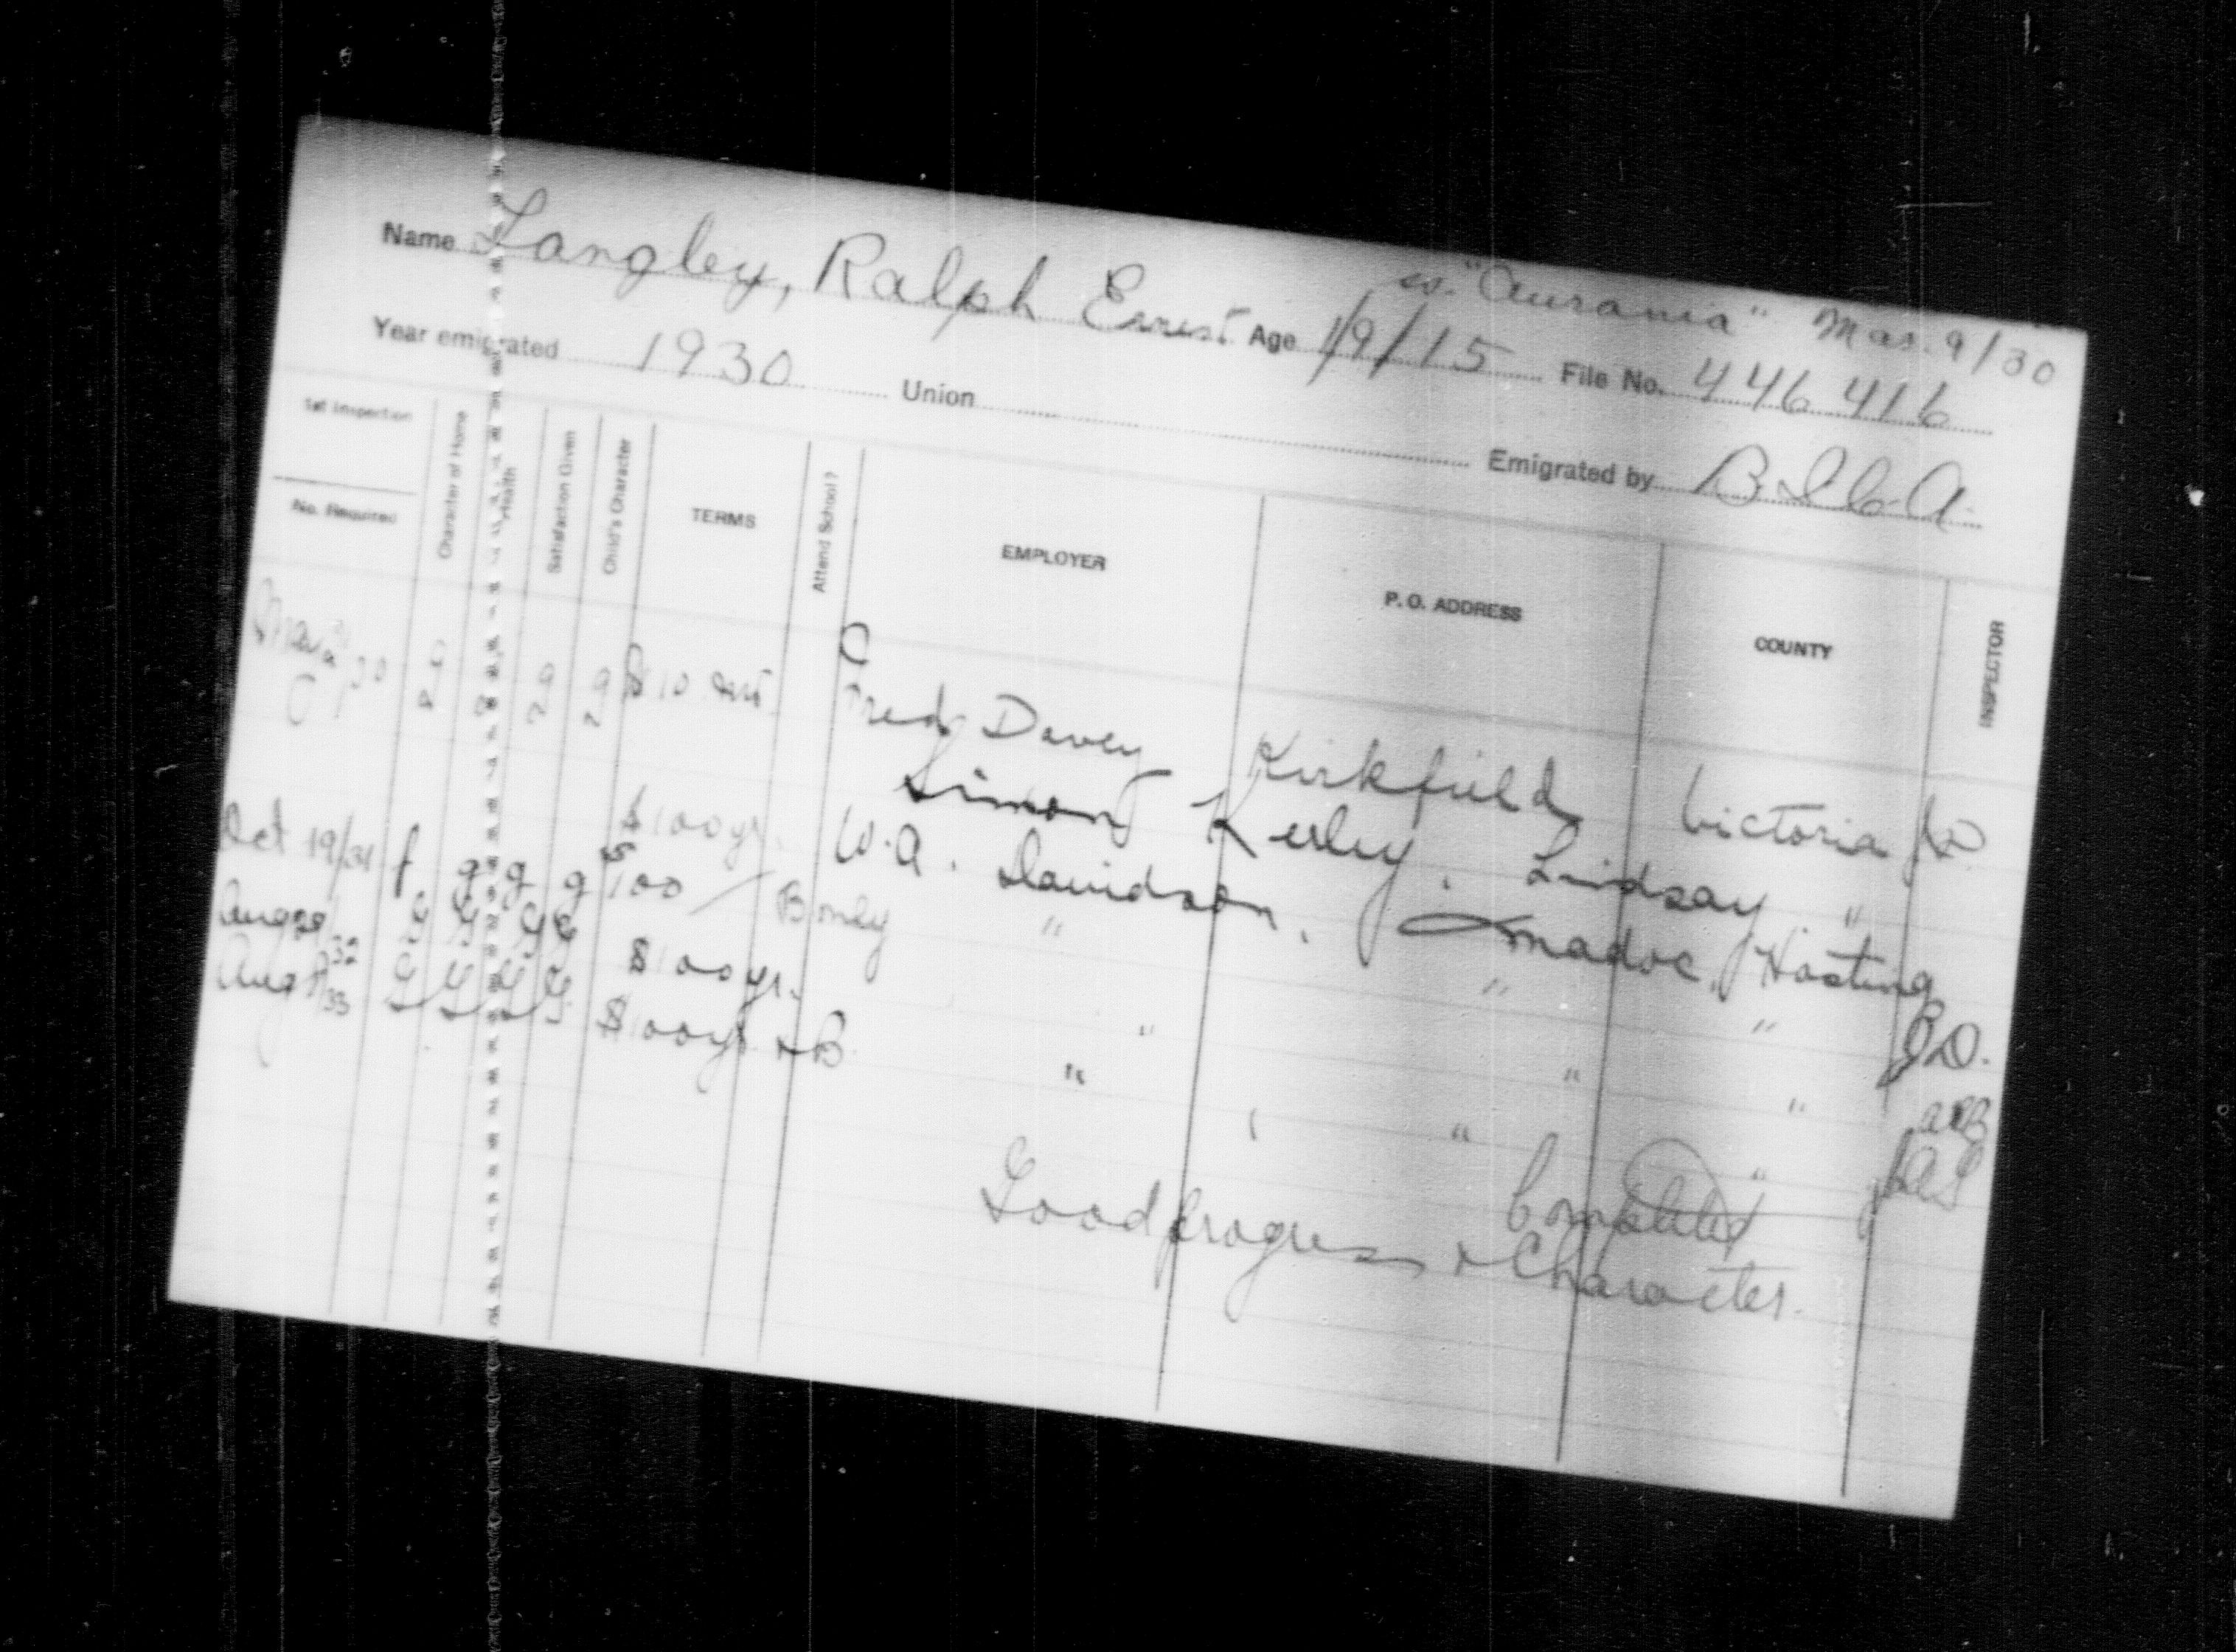 ss. "Aurania" Mar. 9/30
Name Langley, Ralph Ernest Age 1/9/15 File No. 446416
Year emigrated 1930 Union Emigrated by B.I.C.A.
1st Inspection
No. Required
Character of Home
Health
Satisfaction Given
Child's Character
TERMS
Attend School?
EMPLOYER
P. O. ADDRESS
COUNTY
INSPECTOR
$10 Fred Davey Kirkfield Victoria
$100 yr. Simon Kerley, Lindsay "
Oct 19/31 f g g g 100 W. A. Davidson, Madoc, Hasting
Aug 29/32 G G G G $100 yr. B only " " " J.D.
Aug 8/33 G G G G $100 yr + B " " "
" " "
Completed
Good progress + Character.